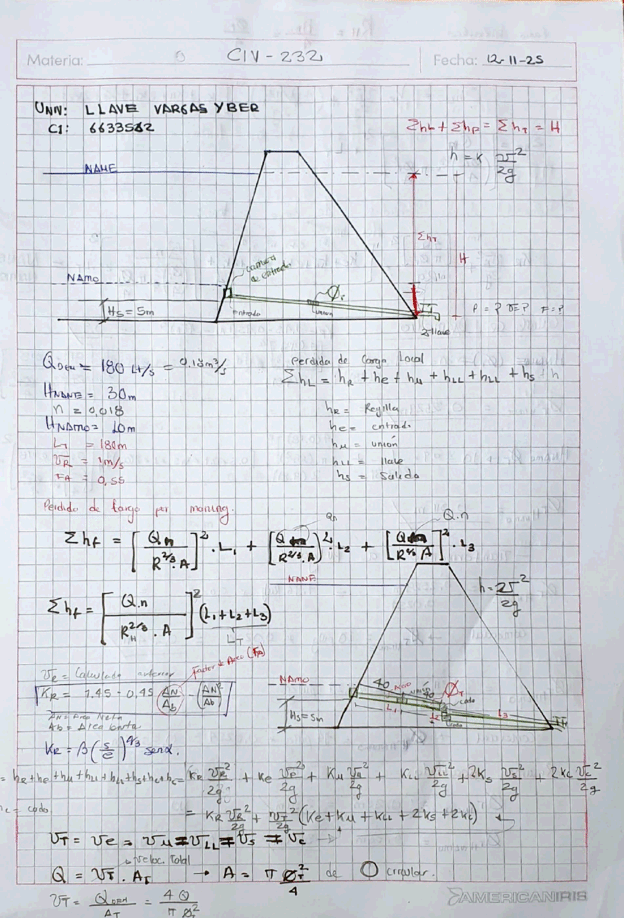 Materia: CIV - 232
Fecha: 12-11-25
UNIV: LLAVE VARGAS YBER
CI: 6633582
ΣhL + Σhp = Σh_T = H
h = k v²/2g
NAME
Σh_T
H
NAMO
camara de entrada
Hs = 5m
entrada
union
Φ_T
llave
P = ? v = ? F = ?
Q_DEM = 180 Lt/s = 0.18 m³/s
H_NANE = 30m
n = 0,018
H_NAMO = 10m
L_T = 180m
v_R = 1m/s
FA = 0,55
perdida de carga local
Σh_L = h_R + h_e + h_u + h_LL + h_LL + h_s + h
h_R = Rejilla
h_e = entrada
h_u = unión
h_LL = llave
h_s = Salida
Perdida de largo por manning.
Σh_f = [Q n / R^2/3 · A]² · L₁ + [Q n / R^2/3 · A]² · L₂ + [Q n / R^2/3 · A]² · L₃
Qn
Q.n
NANE
h = v²/2g
Σh_f = [Q.n / R_H^2/3 · A]² (L₁ + L₂ + L₃)
L_T
Factor de Area (FA)
v_R = Calculado
K_R = 1.45 - 0.45 (AN/Ab) - (AN/Ab)²
AN = Area Neta
Ab = Area bruta
K_R = β (s/e)^4/3 senα.
NAMO
40
union
40
Φ_T
codo
Hs = 5m
L₁
L₂
L₃
codo
= h_R + h_e + h_u + h_LL + h_s + h_c + h_c = K_R v_R²/2g + K_e v_e²/2g + K_u v_u²/2g + K_LL v_LL²/2g + 2K_s v_s²/2g + 2K_c v_c²/2g
h_c = codo
= K_R v_R²/2g + v_T²/2g (K_e + K_u + K_LL + 2K_s + 2K_c)
v_T = v_e = v_u = v_LL = v_s = v_c
veloc. total
Q = v_T · A_T → A = π Φ_T²/4 de ○ circular.
v_T = Q_DEM/A_T = 4Q/π Φ_T²
AMERICANIRIS